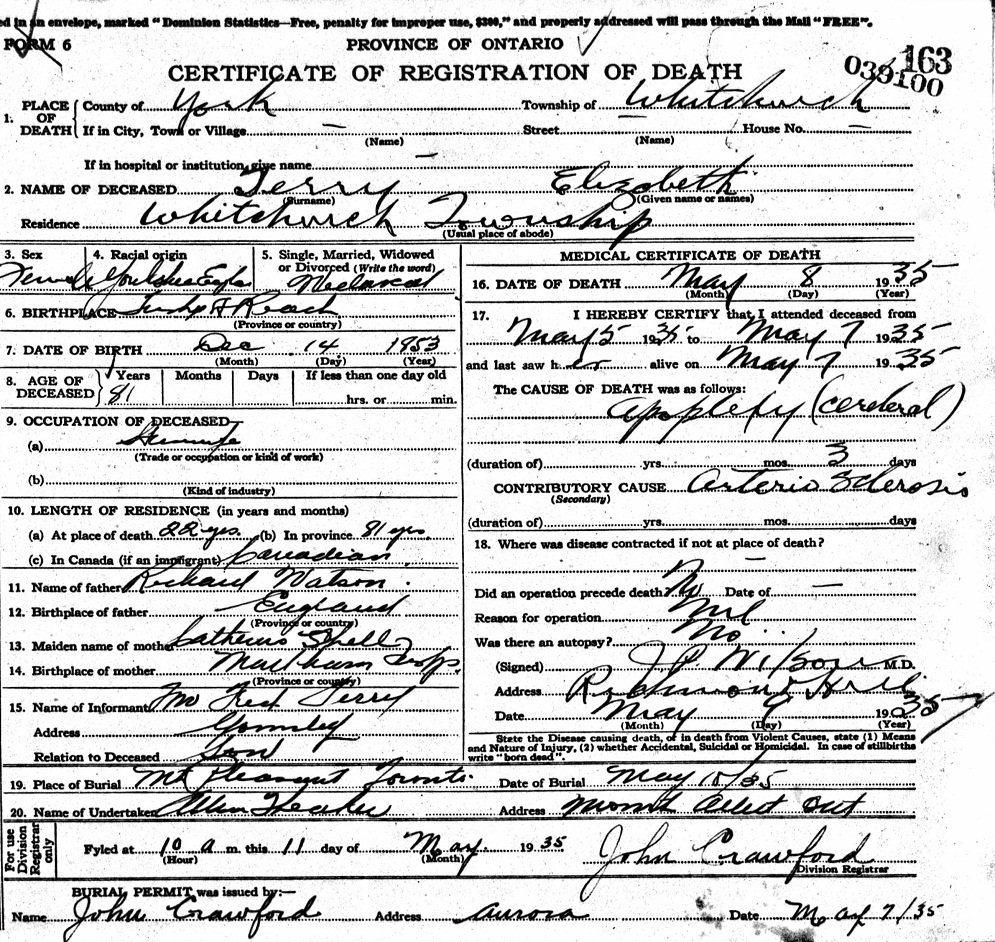 ed in an envelope, marked "Dominion Statistics—Free, penalty for improper use, $300," and properly addressed will pass through the Mail "FREE".
FORM 6 PROVINCE OF ONTARIO
CERTIFICATE OF REGISTRATION OF DEATH 039100 163
1. PLACE OF DEATH County of York Township of Whitchurch
If in City, Town or Village — Street — House No. —
(Name) (Name)
If in hospital or institution, give name —
2. NAME OF DECEASED Terry Elizabeth
(Surname) (Given name or names)
Residence Whitchurch Township
(Usual place of abode)
3. Sex 4. Racial origin 5. Single, Married, Widowed or Divorced (Write the word)
Female
6. BIRTHPLACE Reach
(Province or country)
7. DATE OF BIRTH Dec 14 1853
(Month) (Day) (Year)
8. AGE OF DECEASED Years Months Days If less than one day old
81 hrs. or min.
9. OCCUPATION OF DECEASED
(a)
(Trade or occupation or kind of work)
(b)
(Kind of industry)
10. LENGTH OF RESIDENCE (in years and months)
(a) At place of death 22 yrs. (b) In province 81 yrs.
(c) In Canada (if an immigrant) Canadian
11. Name of father Richard Watson
12. Birthplace of father England
(Province or country)
13. Maiden name of mother
14. Birthplace of mother Markham Twp.
(Province or country)
15. Name of Informant Mr Fred Terry
Address Gormley
Relation to Deceased Son
MEDICAL CERTIFICATE OF DEATH
16. DATE OF DEATH May 8 1935
(Month) (Day) (Year)
17. I HEREBY CERTIFY that I attended deceased from
May 5 1935 to May 7 1935
and last saw her alive on May 7 1935
The CAUSE OF DEATH was as follows:
apoplexy (cerebral)
(duration of) yrs. mos. 3 days
CONTRIBUTORY CAUSE Arterio Sclerosis
(Secondary)
(duration of) yrs. mos. days
18. Where was disease contracted if not at place of death?
—
Did an operation precede death? No Date of —
Reason for operation Nil
Was there an autopsy? No
(Signed) Wilson M.D.
Address Richmond Hill
Date May 9 1935
(Month) (Day) (Year)
State the Disease causing death, or in death from Violent Causes, state (1) Means
and Nature of Injury, (2) whether Accidental, Suicidal or Homicidal. In case of stillbirths
write "born dead".
19. Place of Burial Mt Pleasant Toronto. Date of Burial May 10/35
20. Name of Undertaker Address Mount Albert Ont
For use Division Registrar only
Fyled at 10 a m. this 11 day of May 1935 John Crawford
(Hour) (Month) Division Registrar
BURIAL PERMIT was issued by:—
Name John Crawford Address Aurora Date May 7/35